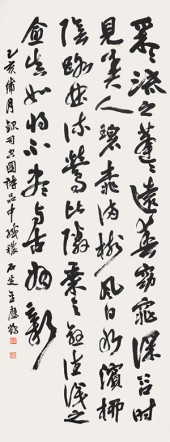 采采流水蓬蓬遠春窈窕深谷時
見美人碧桃滿樹風日水濱柳
陰路曲流鶯比隣乘之愈往識之
愈真如將不盡與古為新
乙亥蒲月錄司空圖詩品中纖穠